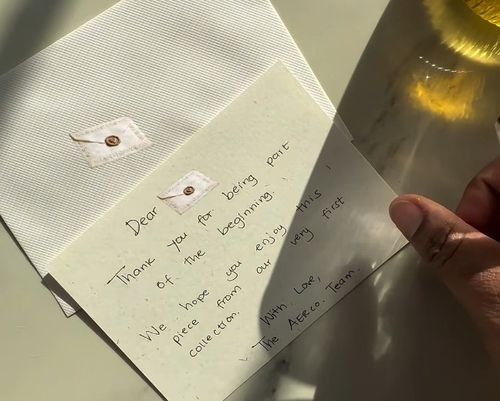 Dear
Thank you for being part
of the beginning!
We hope you enjoy this
piece from our very first
collection.
With Love,
The AERCO. Team.